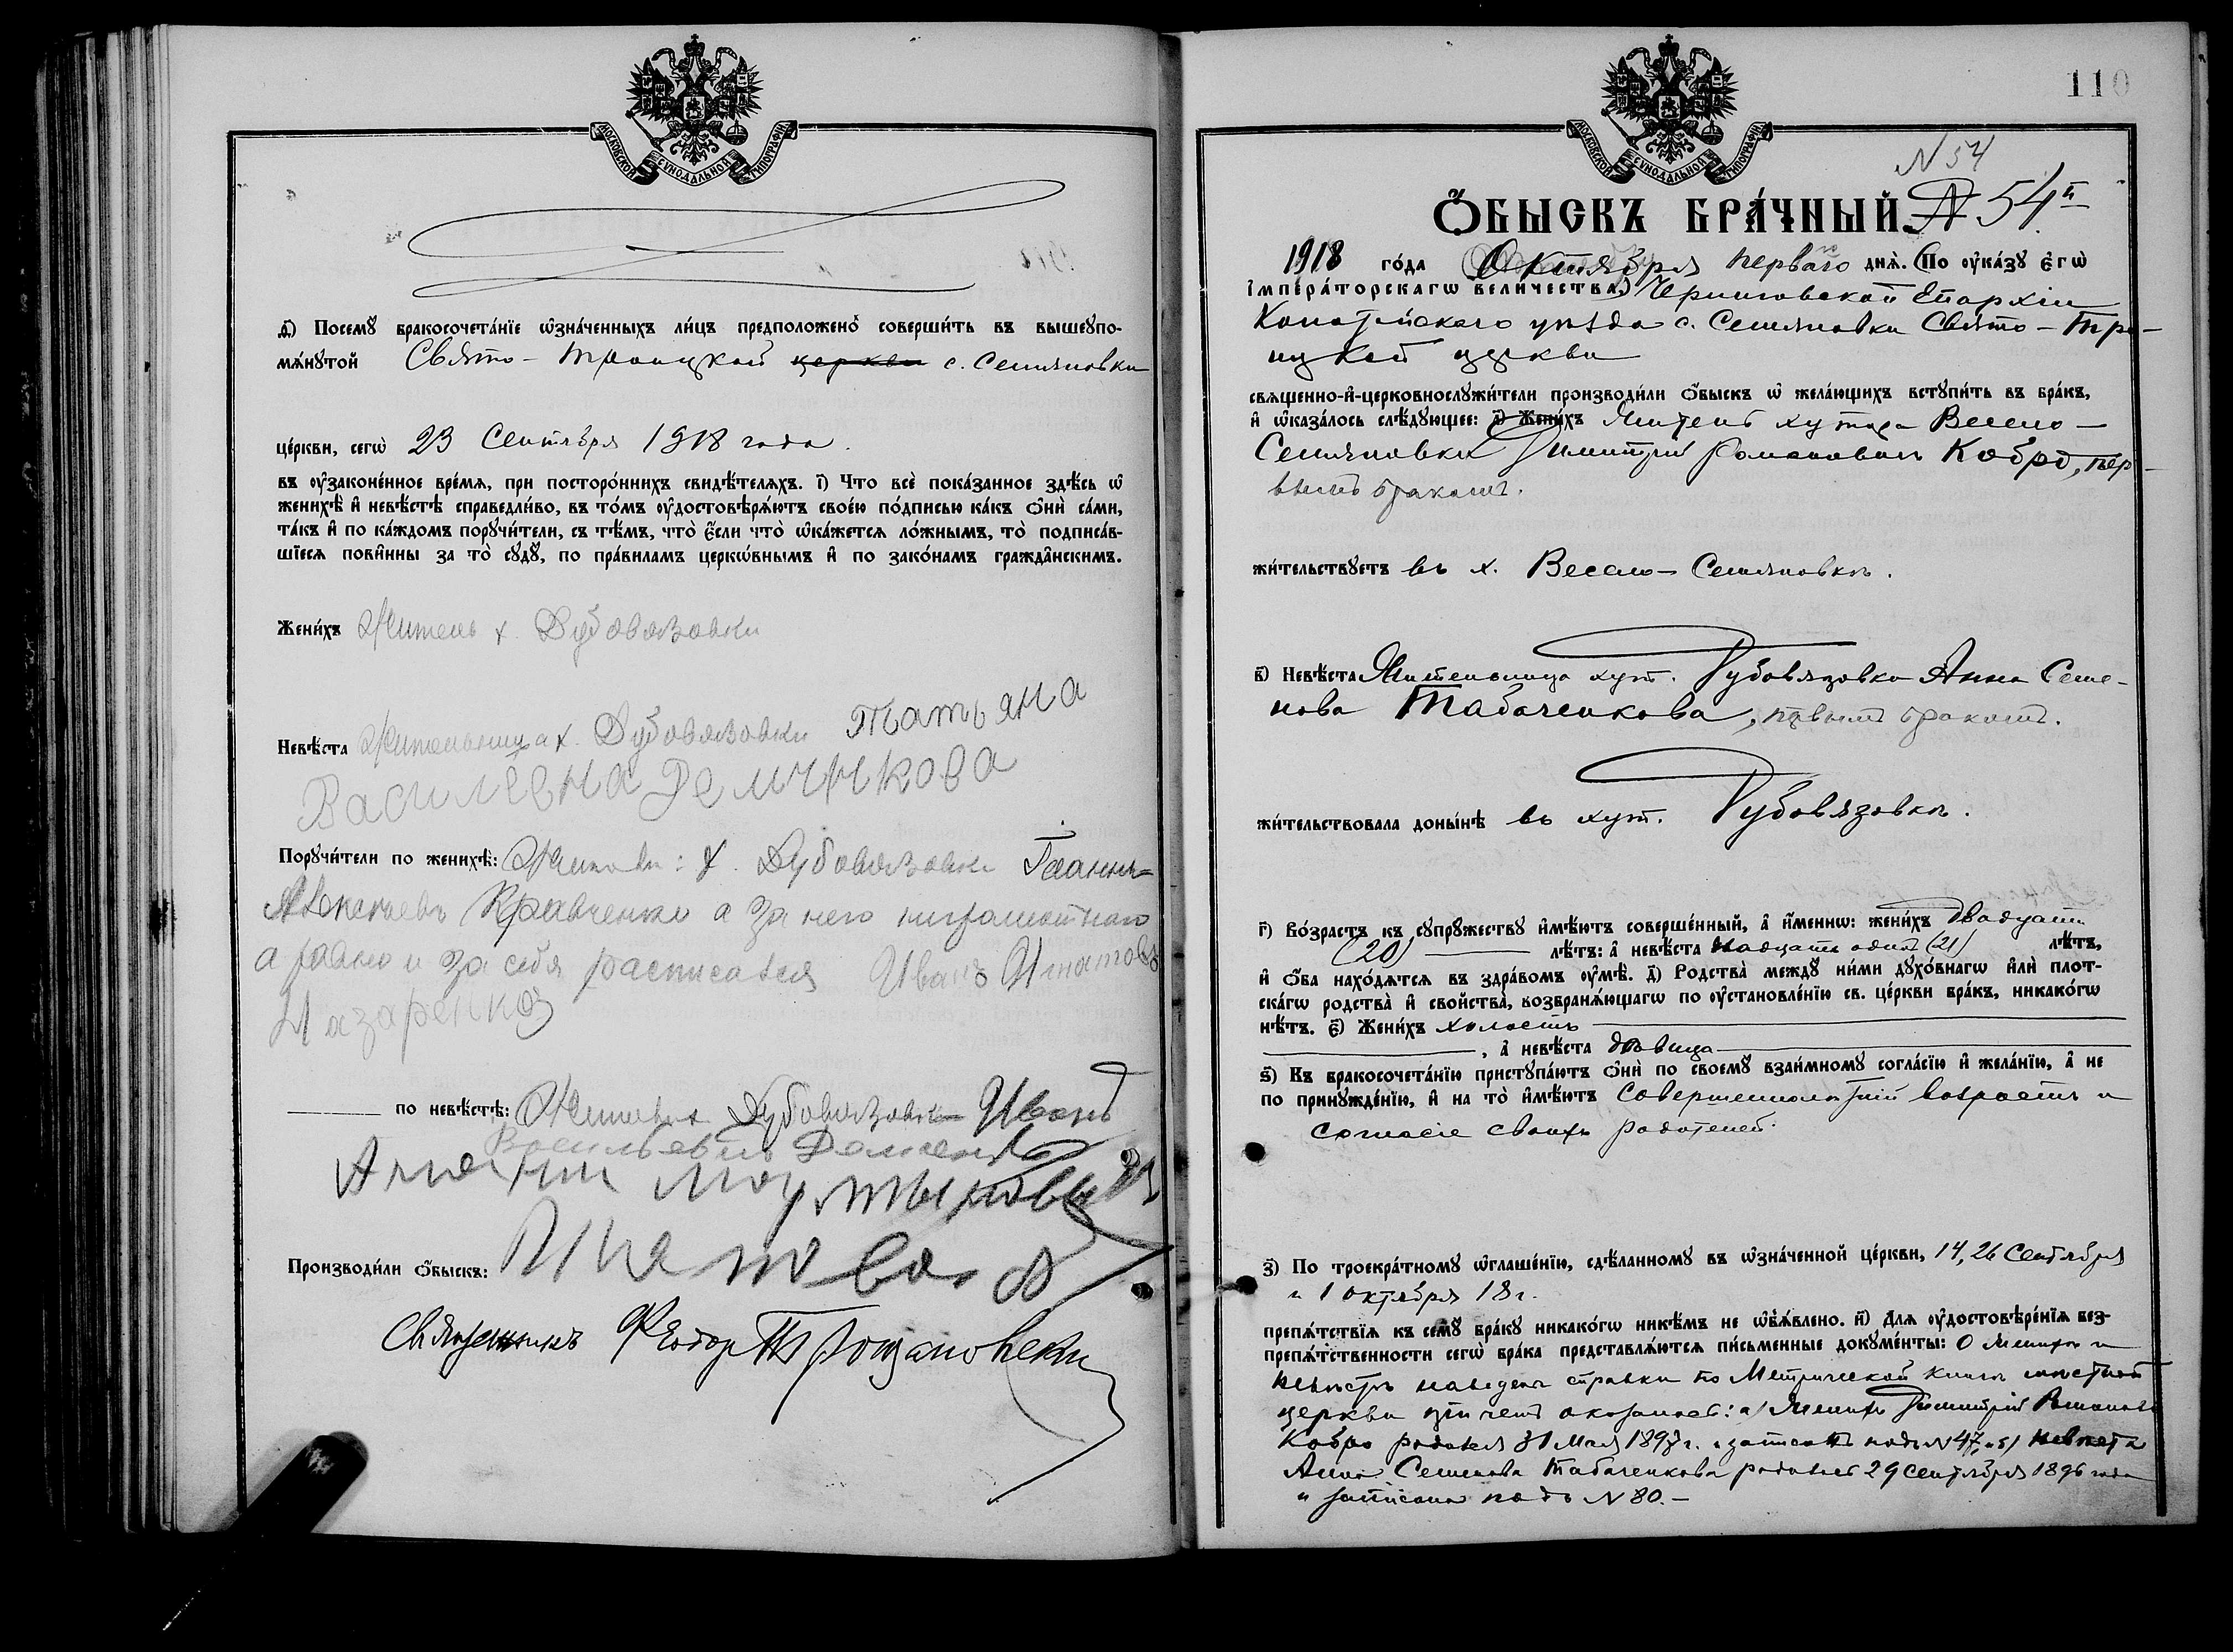 МОСКОВСКОЙ СѴНОДАЛЬНОЙ ТИПОГРАФІИ
ѳ҃) Посемꙋ̀ бракосочета́нїе ѡ҆зна́ченныхъ ли́цъ предположено̀ соверши́ть въ вышеꙋпо-
мѧ́нꙋтой Свято-Троицкой церкви с. Семяновки
це́ркви, сегѡ̀ 23 Сентября 1918 года.
въ ᲂу҆зако́ненное вре́мѧ, при посторо́ннихъ свидѣ́телѧхъ. і҃) Что всѐ пока́занное здѣ́сь ѡ҆
женихѣ̀ и҆ невѣ́стѣ справедли́во, въ то́мъ ᲂу҆достовѣрѧ́ютъ свое́ю по́дписью ка́къ ѻ҆нѝ са́ми,
та́къ и҆ по ка́ждомъ порꙋчи́тели, съ тѣ́мъ, что̀ є҆́сли что̀ ѡ҆ка́жетсѧ ло́жнымъ, то̀ подписа́в-
шїесѧ пови́нны за то̀ сꙋдꙋ̀, по пра́виламъ церко́внымъ и҆ по зако́намъ гражда́нскимъ.
Жени́хъ Житель х. Дубовязовки
Невѣ́ста Жительница х. Дубовязовки Татьяна
Василевна Демчнкова
Порꙋчи́тели по женихѣ̀: х. Дубовязовки Іоаннъ
Алексѣевъ Кравченко а за него неграмотнаго
а равно и за себя расписался Иванъ Игнатовъ
Назаренко
по невѣ́стѣ: Дубовязовки Иванъ
Васильевъ Деменко
Производи́ли ѻ҆́быскъ:
Священникъ Ѳеодор Трощановски
110
МОСКОВСКОЙ СѴНОДАЛЬНОЙ ТИПОГРАФІИ
N 54
Ѻ҆́БЫСКЪ БРА́ЧНЫЙ. N 54й
1918 го́да Октября перваго днѧ̀. (По ᲂу҆ка́зꙋ є҆гѡ̀
і҆мпера́торскагѡ вели́чества) Черниговской Епархіи
Конотопскаго уѣзда с. Семяновки Свято-Трои-
цкой церкви
свѧще́нно-и҆-церковнослꙋжи́тели производи́ли ѻ҆́быскъ ѡ҆ жела́ющихъ встꙋпи́ть въ бра́къ,
и҆ ѡ҆каза́лось слѣ́дꙋющее: а҃) Жени́хъ Житель хутора Весело-
Семяновки Димитрій Романовичъ Кобро, пер-
вымъ бракомъ.
жи́тельствꙋетъ въ х. Весело-Семяновкѣ.
в҃) Невѣ́ста Жительница хут. Дубовязовки Анна Семе-
нова Табаченкова, первымъ бракомъ.
жи́тельствовала доны́нѣ въ хут. Дубовязовкѣ.
г҃) Во́зрастъ къ сꙋпрꙋ́жествꙋ и҆мѣ́ютъ соверше́нный, а҆ и҆́меннѡ: жени́хъ двадцати
(20) лѣ́тъ: а҆ невѣ́ста двадцать одна (21) лѣ́тъ,
и҆ ѻ҆́ба нахо́дѧтсѧ въ здра́вомъ ᲂу҆мѣ̀. д҃) Родства̀ междꙋ̀ ни́ми дꙋхо́внагѡ и҆лѝ плот-
ска́гѡ родства̀ и҆ свойства̀, возбранѧ́ющагѡ по ᲂу҆становле́нїю св. це́ркви бра́къ, никако́гѡ
нѣ́тъ. є҃) Жени́хъ холостъ
, а҆ невѣ́ста дѣвица
ѕ҃) Къ бракосочета́нїю пристꙋпа́ютъ ѻ҆нѝ по своемꙋ̀ взаи́мномꙋ согла́сїю и҆ жела́нїю, а҆ не
по принꙋжде́нїю, и҆ на то̀ и҆мѣ́ютъ совершеннолѣтній возрастъ и
согласіе своихъ родителей.
з҃) По троекра́тномꙋ ѡ҆глаше́нїю, сдѣ́ланномꙋ въ ѡ҆зна́ченной це́ркви, 14, 26 Сентября
и 1 октября 18 г.
препѧ́тствїѧ къ семꙋ̀ бра́кꙋ никако́гѡ никѣ́мъ не ѡ҆б̾ѧ́влено. и҃) Длѧ ᲂу҆достовѣре́нїѧ без-
препѧ́тственности сегѡ̀ бра́ка представлѧ́ютсѧ пи́сьменные докꙋме́нты: О женихѣ и
невѣстѣ наведены справки по Метрической книгѣ мѣстной
церкви при чемъ оказалось: а) Женихъ Димитрій Романовъ
Кобро родился 31 Мая 1897 г. и записанъ подъ N 47, и б) невѣста
Анна Семенова Табаченкова родилась 29 сентября 1896 года
и записана подъ N 80.-